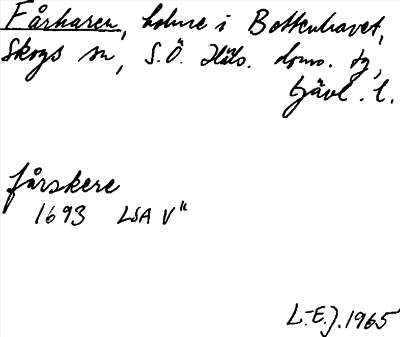 Fårharen, holme i Bottenhavet,
Skogs sn, S.Ö. Häls. doms. tg,
Gävl. l.
fårskere
1693 LSA V"
L-E.J. 1965